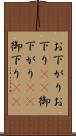 お下がりお
下り 御
下がり
御下り